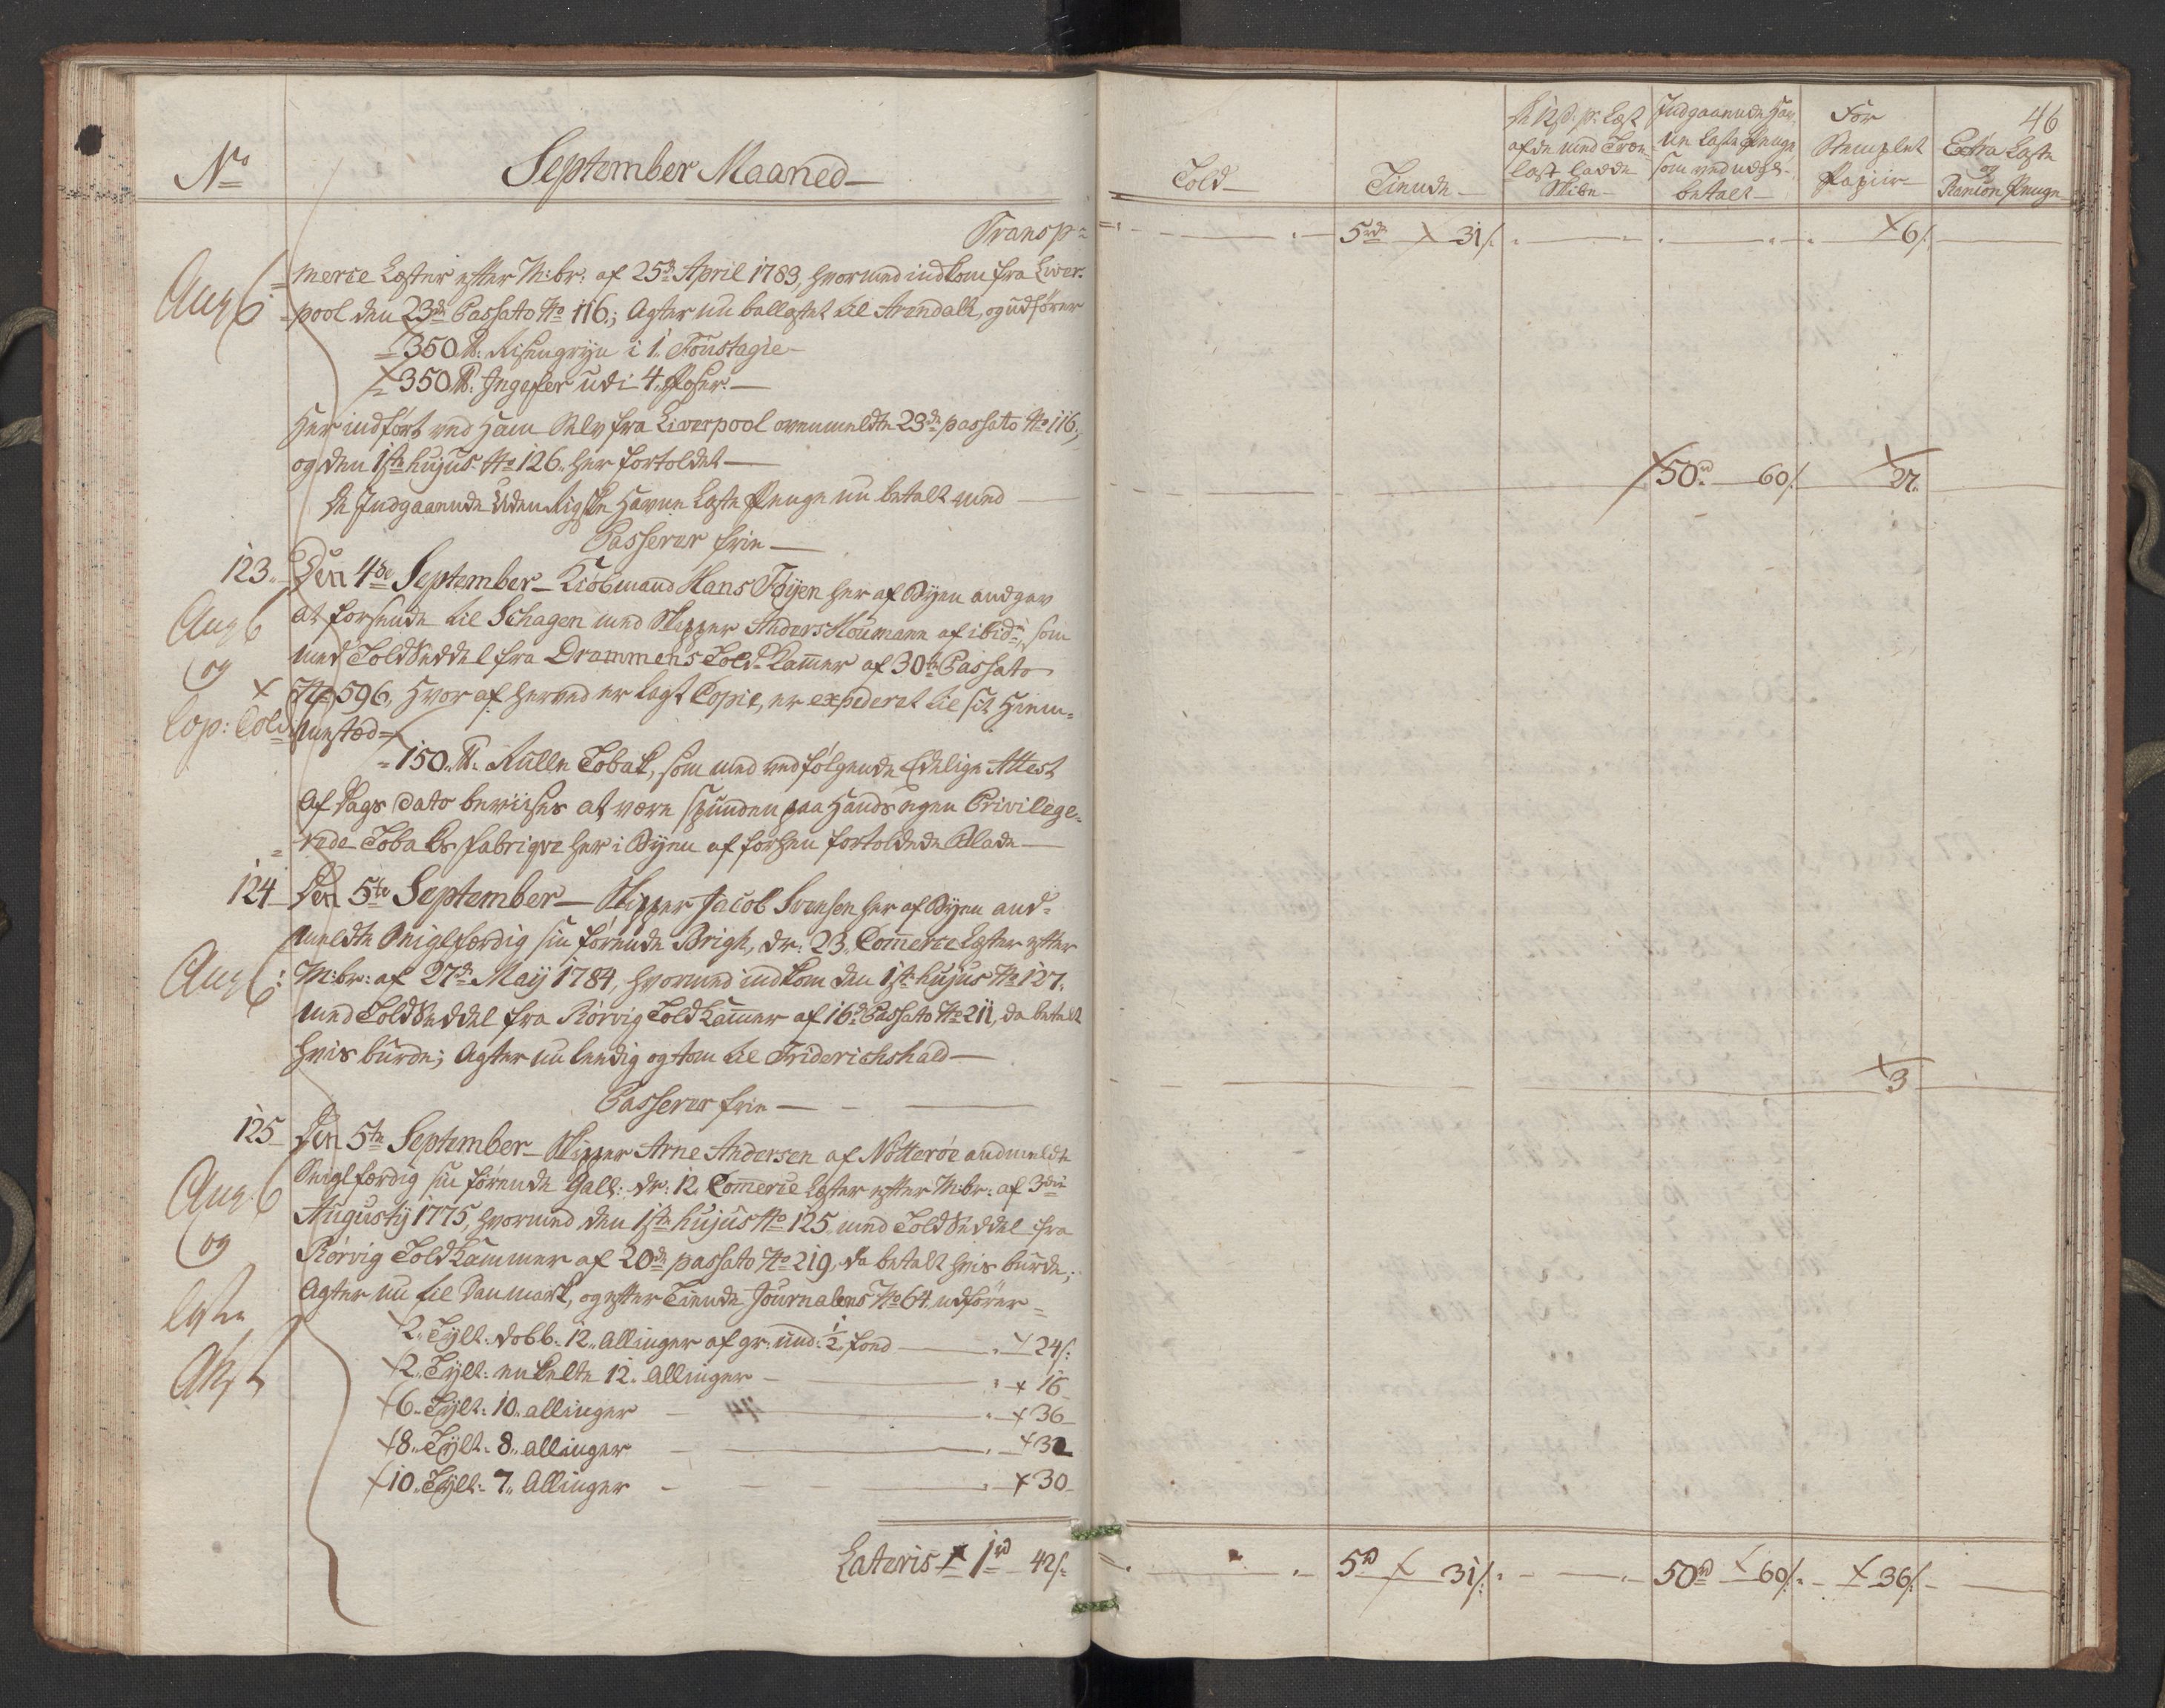 No
September Maaned
Transp:
Ang 6
merce Læster efter M:br: af 25de April 1783, hvormed indkom fra Liver-
pool den 23de Passato No 116; Agter nu ballastet til Arendall, og udfører
350 lb. Risengryn i 1. Foustagie
350 lb. Ingefer udi 4. Poser
Her indført ved Ham Selv fra Liverpool ovenmeldte 23de passato No 116,
og den 1ste hujus No 126 her fortoldet
De Indgaaende Uden Rigske Havne Laste Penge nu betalt med
Passerer frie
123
Den 4de September Kiøbmand Hans Føyen her af Byen andgav
Ang 6
og
Cop: Told:
at forsende til Schagen med Skipper Anders Houmann af ibid:, som
med Toldseddel fra Drammens Told Kammer af 30te Passato
No 596, hvoraf herved er lagt Copie, er expederet til sit Hiem-
mested
150 lb. Rulle Tobak, som med vedfølgende Edelige Attest
af Dags Dato beviises at være spunden paa Hands egen Privilege-
rede Tobaks fabriqve her i Byen af forhen fortoldede Blade
124
Den 5te September Skipper Jacob Svensen her af Byen and-
Ang 6
meldte Seiglfærdig sin førende Brigh, dr: 23. Commerce Læster efter
M:br: af 27de Maij 1784, hvormed indkom den 1ste hujus No 127.
med Toldseddel fra Rørvig Toldkammer af 16de Passato No 211, da betalt
hvis burde; Agter nu leedig og tom til Friderichshald
Passerer frie
125
Den 5te September Skipper Arne Andersen af Nøtterøe andmeldte
Ang 6
og
Laste
Seiglfærdig sin førende Gall: dr: 12. Commerce Læster efter M:br: af 3die
Augustij 1775, hvormed den 1ste hujus No 125 med Toldseddel fra
Rørvig Toldkammer af 20de passato No 219, da betalt hvis burde;
Agter nu til Danmark, og efter Tiende Journalens No 64. udfører
2. Tylt: dobb: 12. Allinger af gr: und: 1/2 fond 24 s:
2. Tylt: enkelte 12. Allinger 16
6. Tylt: 10. allinger 36
8. Tylt: 8. allinger 32
10. Tylt: 7. Allinger 30
Lateris 1 rd 42 s:
46
Told
Tiende
de 12 s. pr. Læst
af de med Træ-
last ladde
Skibe
Indgaaende Hav-
ne Laste Penge
som ved udg:
betalt
For
Stemplet
Papiir
Extra Laste
og
Rancion Penge
5 rd 31 s. 6 s.
50 rd 60 s. 27.
3
5 rd 31 s. 50 rd 60 s. 36 s.